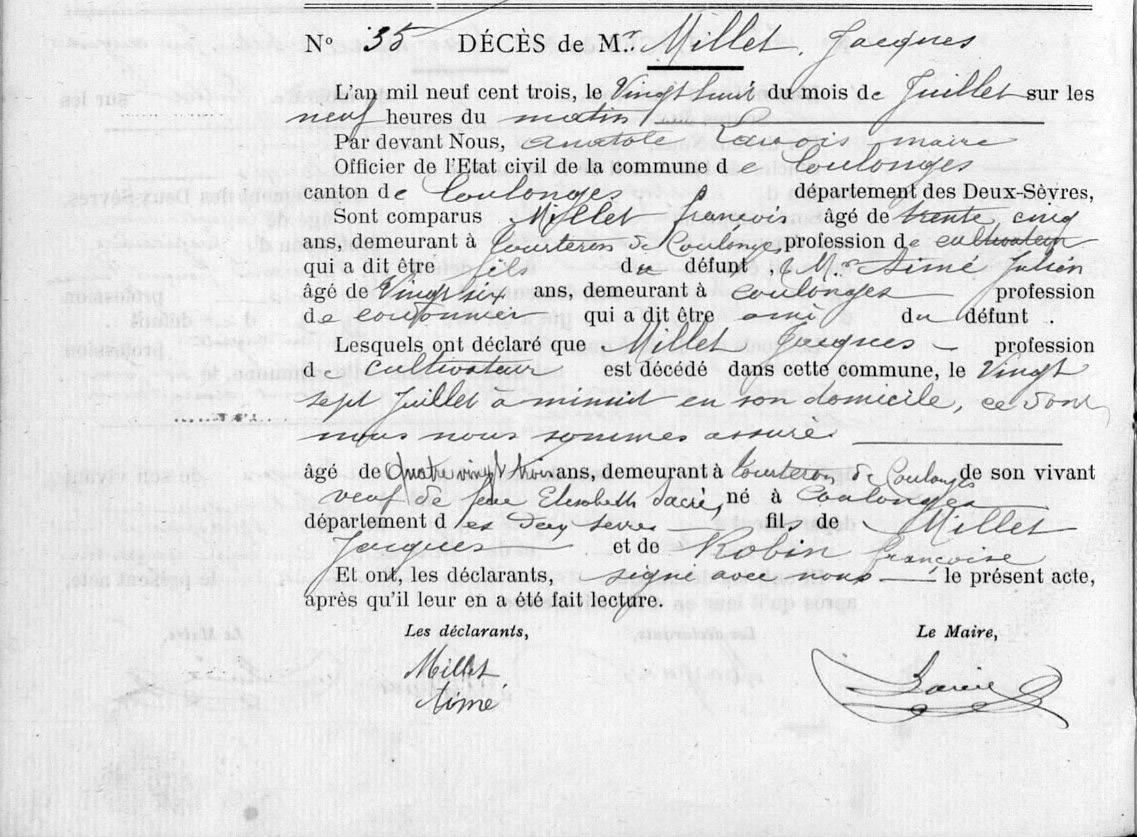 N° 35 DÉCÈS de Mr. Millet Jacques
L'an mil neuf cent trois, le Vingt huit du mois de Juillet sur les
neuf heures du matin
Par devant Nous, anatole maire
Officier de l'Etat civil de la commune de Coulonges
canton de Coulonges département des Deux-Sèvres,
Sont comparus Millet françois âgé de trente cinq
ans, demeurant à Courteron de Coulonges, profession de cultivateur
qui a dit être fils du défunt, & Mr Aimé Julien
âgé de Vingt six ans, demeurant à Coulonges profession
de cordonnier qui a dit être ami du défunt.
Lesquels ont déclaré que Millet Jacques profession
de cultivateur est décédé dans cette commune, le Vingt
sept Juillet à minuit en son domicile, ce dont
nous nous sommes assuré.
âgé de quatre vingt trois ans, demeurant à Courteron de Coulonges de son vivant
veuf de Elisabeth Sacré, né à Coulonges
département des deux sevres fils de Millet
Jacques et de Robin françoise
Et ont, les déclarants, signé avec nous le présent acte,
après qu'il leur en a été fait lecture.
Les déclarants, Le Maire,
Millet
Aimé